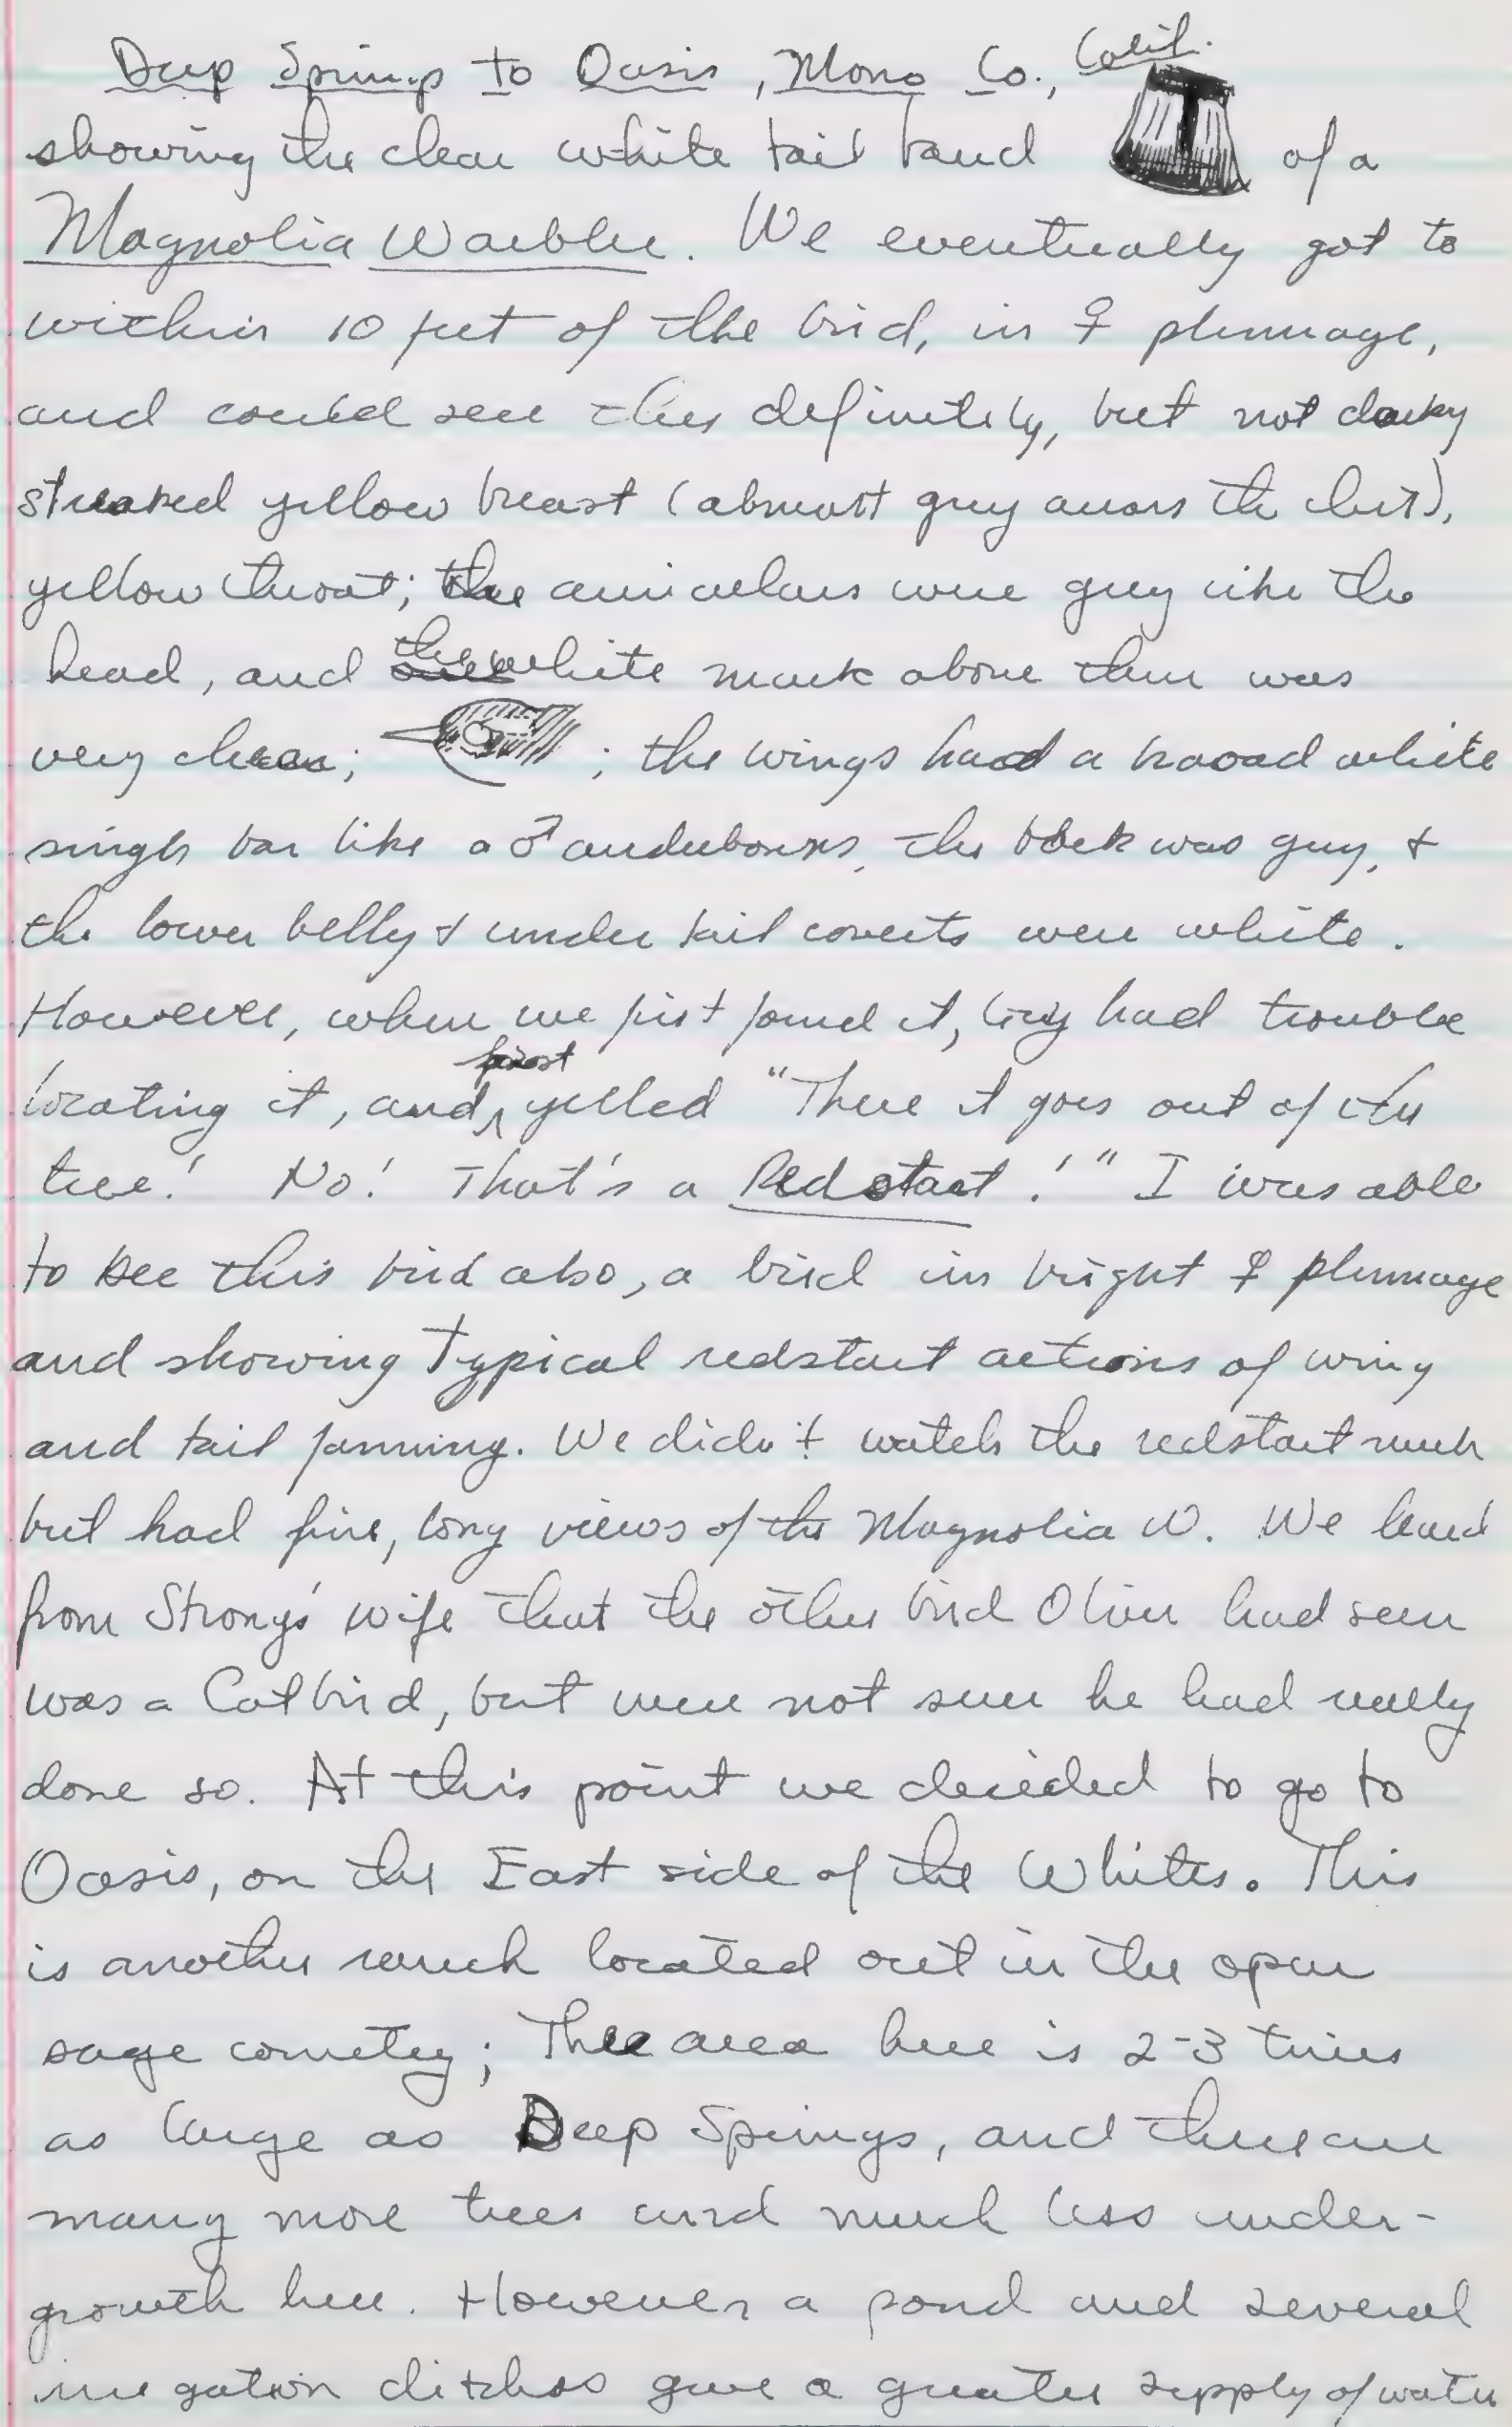 Deep Springs to Oasis, Mono Co., Calif.
showing the clear white tail band of a
Magnolia Warbler. We eventually got to
within 10 feet of the bird, in ♀ plumage,
and could see the definitely, but not darkly
streaked yellow breast (almost grey across the chest),
yellow throat; the auriculars were grey like the
head, and the white mark above them was
very clear; ; the wings had a broad white
single bar like a ♂ audubons, the back was grey, &
the lower belly & under tail coverts were white.
However, when we first found it, Guy had trouble
locating it, and first yelled "There it goes out of the
tree! No! That's a Redstart!" I was able
to see this bird also, a bird in bright ♀ plumage
and showing typical redstart actions of wing
and tail fanning. We didn't watch the redstart much
but had fine, long views of the Magnolia W. We heard
from Strong's wife that the other bird Oliver had seen
was a Catbird, but were not sure he had really
done so. At this point we decided to go to
Oasis, on the East side of the Whites. This
is another ranch located out in the open
sage country; The area here is 2-3 times
as large as Deep Springs, and there are
many more trees and much less under-
growth here. However a pond and several
irrigation ditches give a greater supply of water